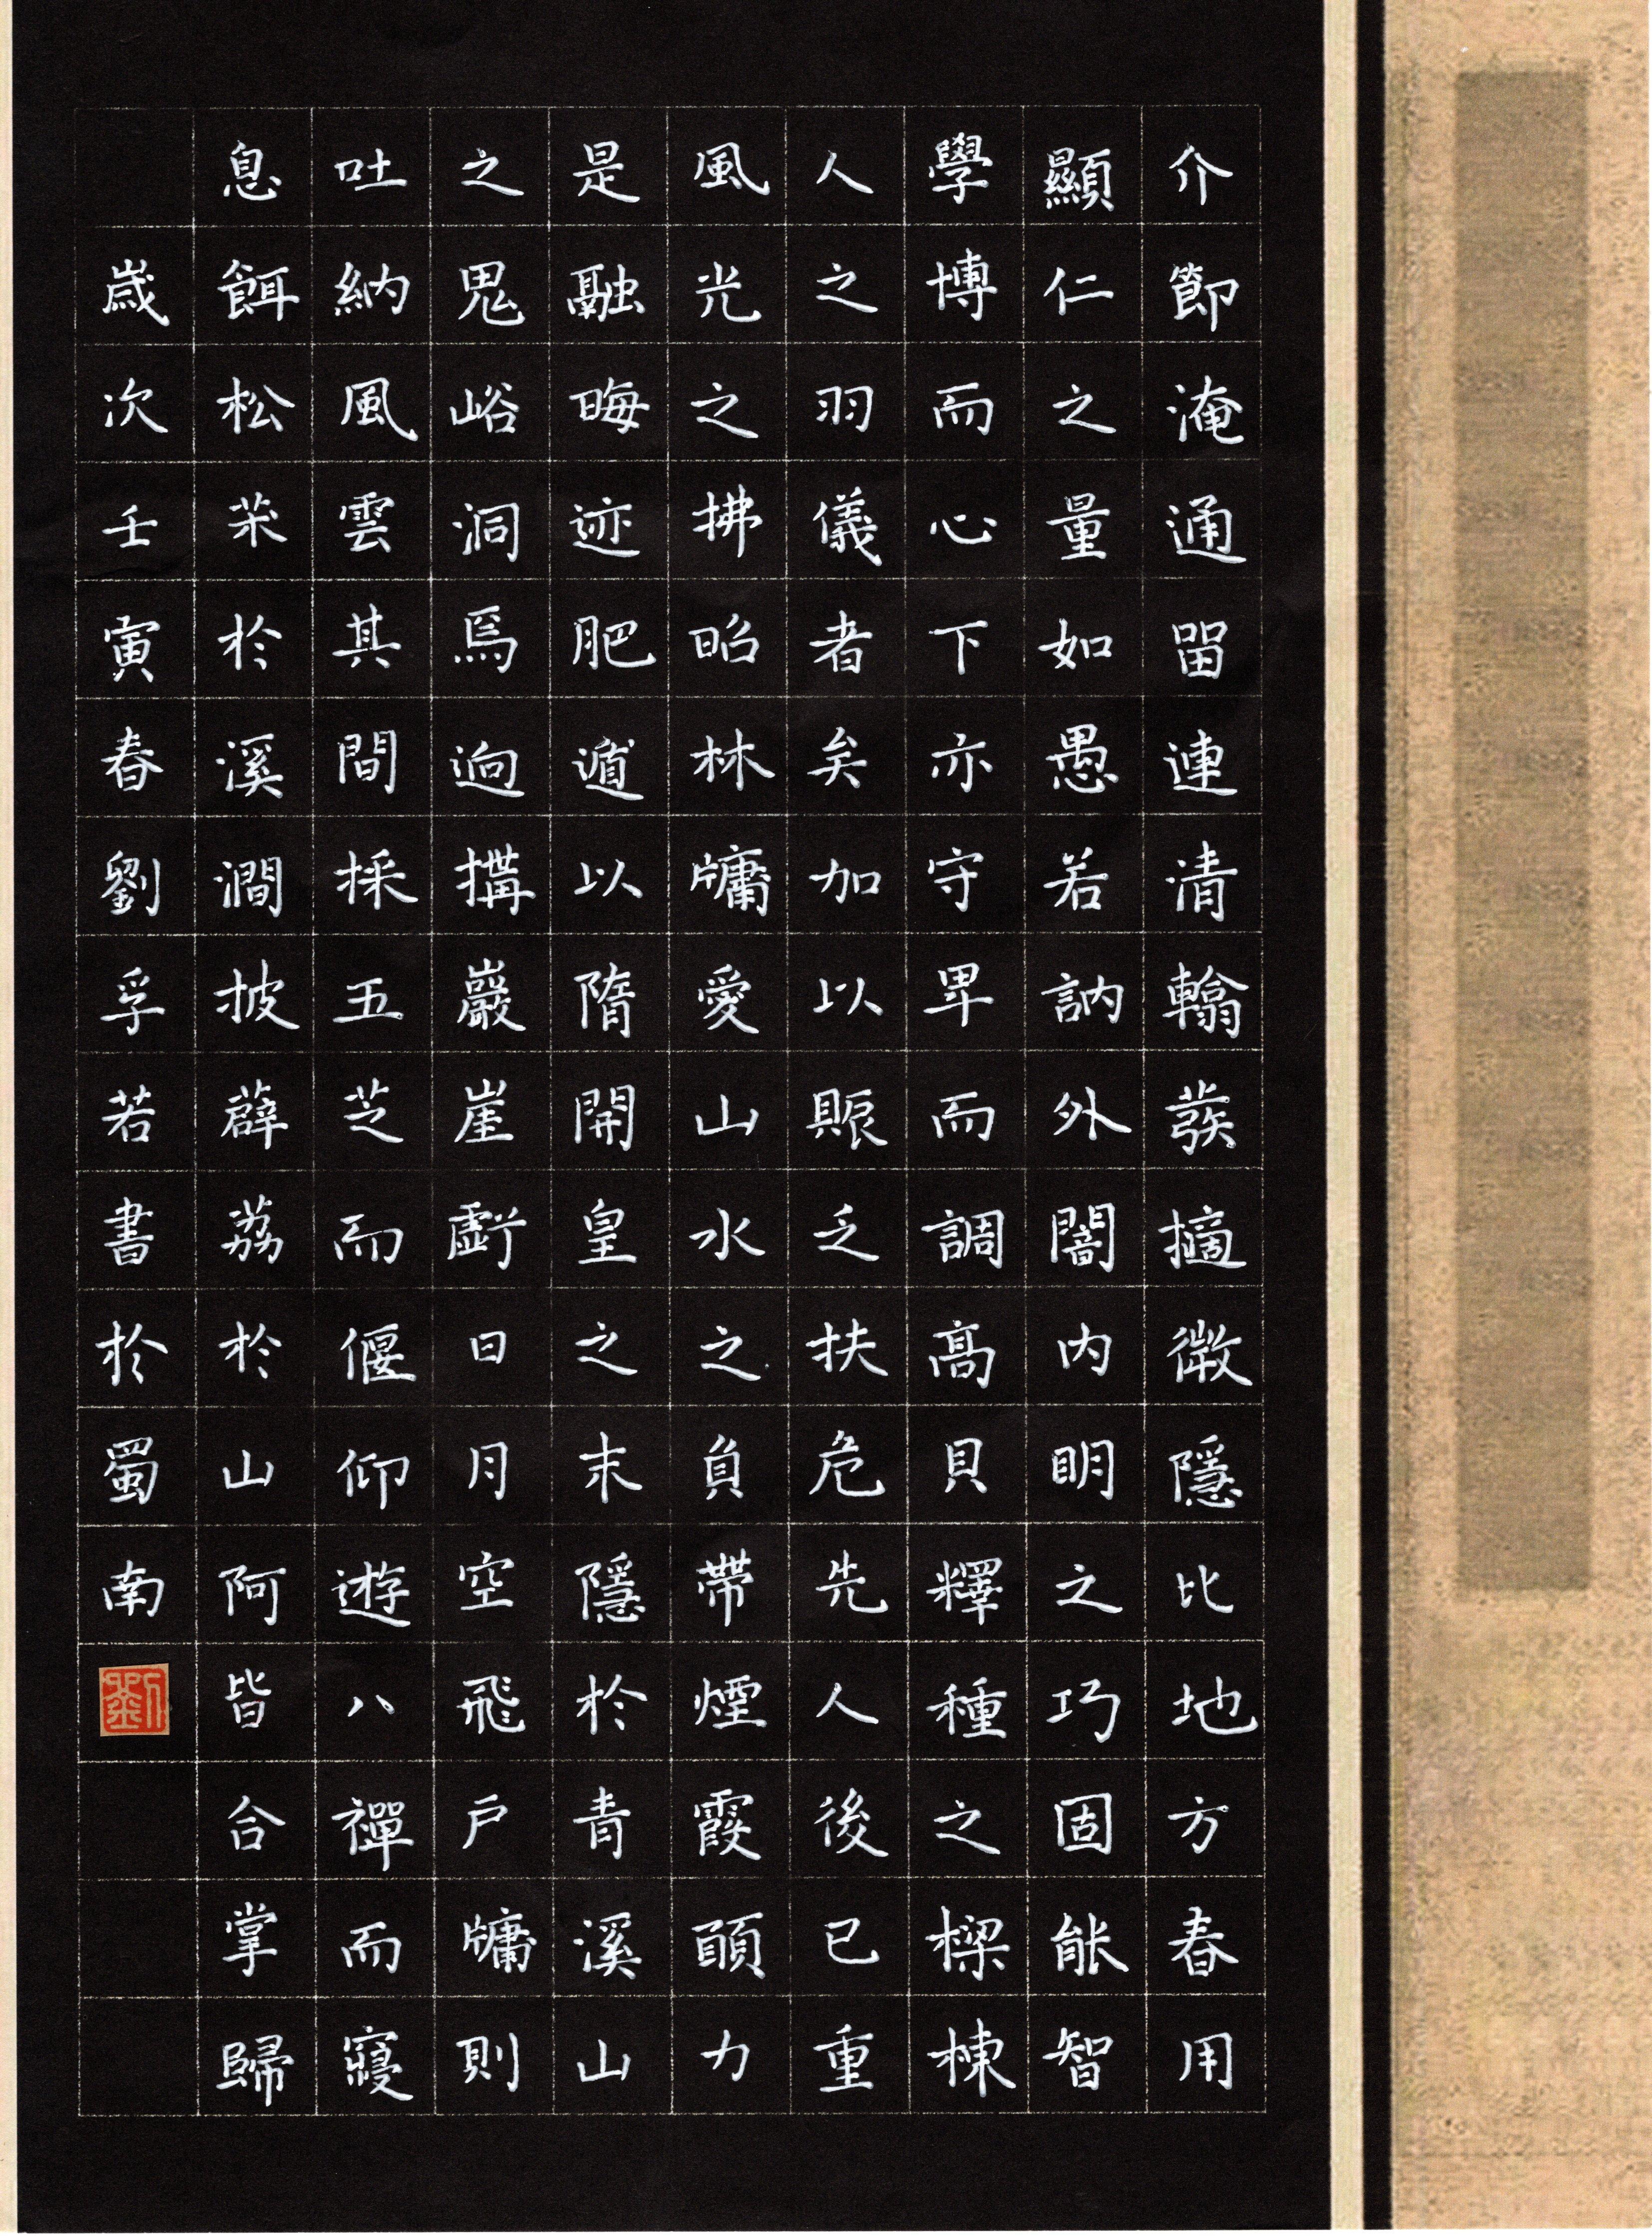 介節淹通留連清翰蕤摘微隱比地方春用
顯仁之量如愚若訥外闇内明之巧固能智
學博而心下亦守卑而調高貝釋種之樑棟
人之羽儀者矣加以賑乏扶危先人後已重
風光之拂昭林牗愛山水之負帶煙霞頤力
是融晦迹肥遁以隋開皇之末隱於青溪山
之鬼峪洞焉迥搆巖崖虧日月空飛户牗則
吐納風雲其間採五芝而偃仰遊八禪而寢
息餌松朮於溪澗披薜荔於山阿皆合掌歸
歲次壬寅春劉孚若書於蜀南
劉